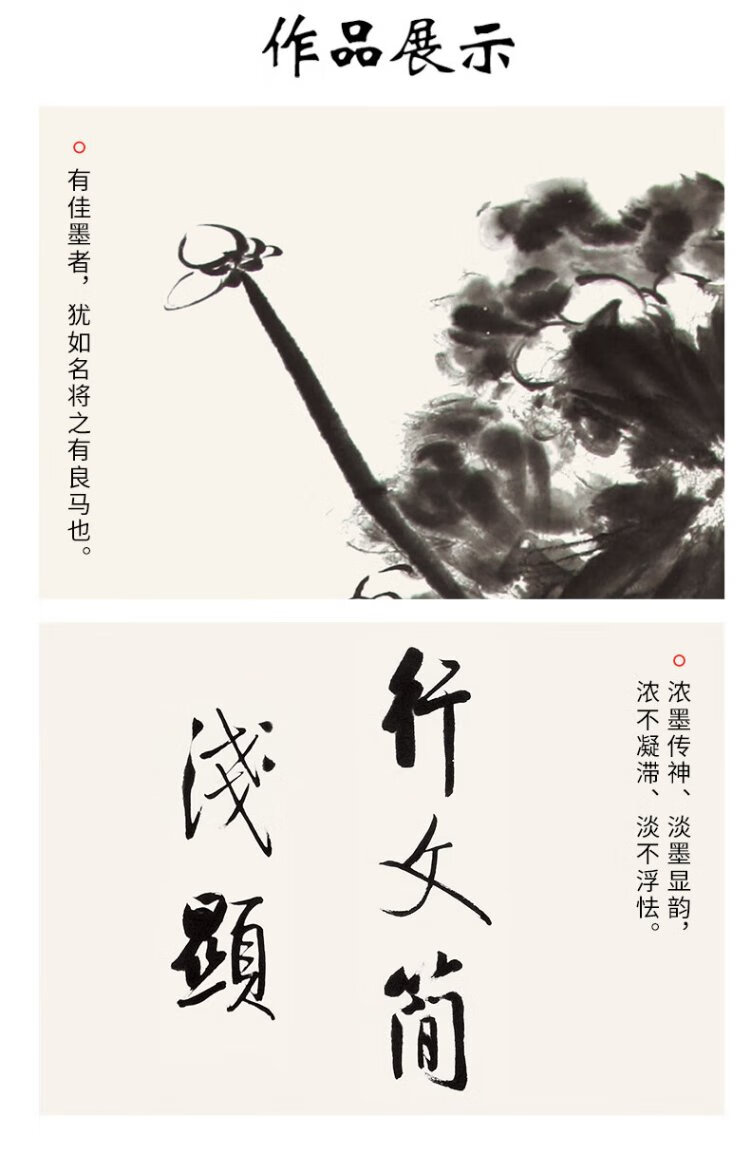 作品展示
有佳墨者，犹如名将之有良马也。
浓墨传神、淡墨显韵，
浓不凝滞、淡不浮怯。
行文简
浅顯